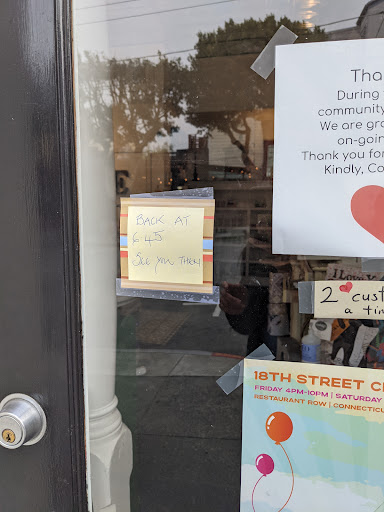 BACK AT
6 45
SEE YOU THEN
Tha
During
community
We are gra
on-goin
Thank you for
Kindly, Co
I Lov
2 cust
a tim
18TH STREET C
FRIDAY 4PM-10PM | SATURDAY
RESTAURANT ROW | CONNECTICU